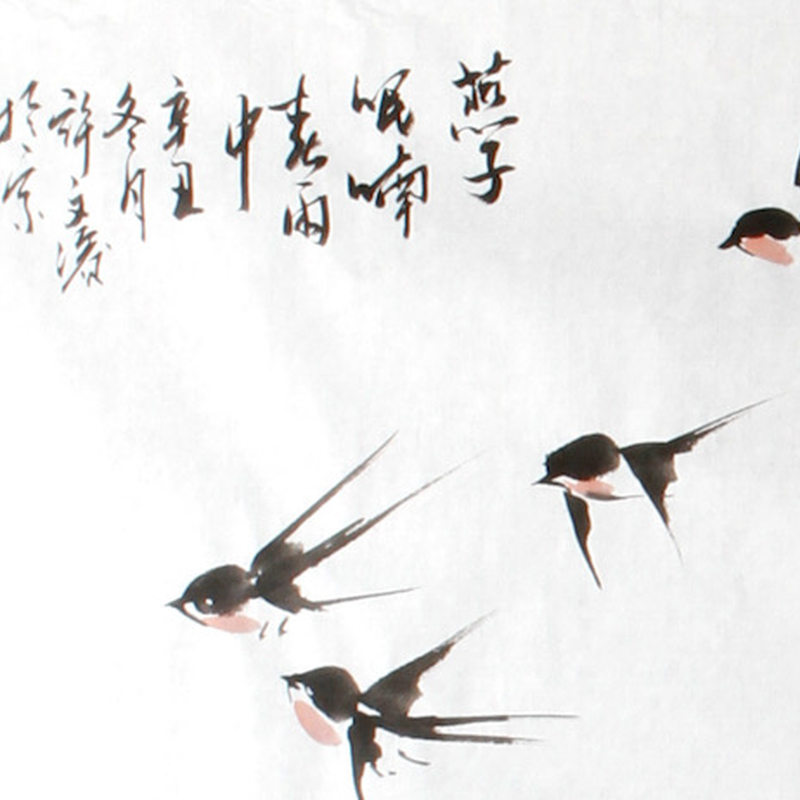 燕子
呢喃
春雨
中
辛丑
冬月
許文濤
於京